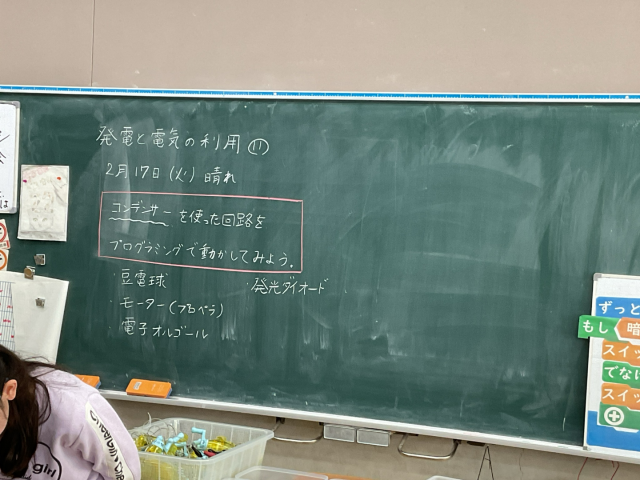 発電と電気の利用 ⑪
2月17日(火) 晴れ
コンデンサーを使った回路を
プログラミングで動かしてみよう。
・豆電球
・発光ダイオード
・モーター(プロペラ)
・電子オルゴール
ずっと
もし 暗
スイッ
でなけ
スイッ
girl